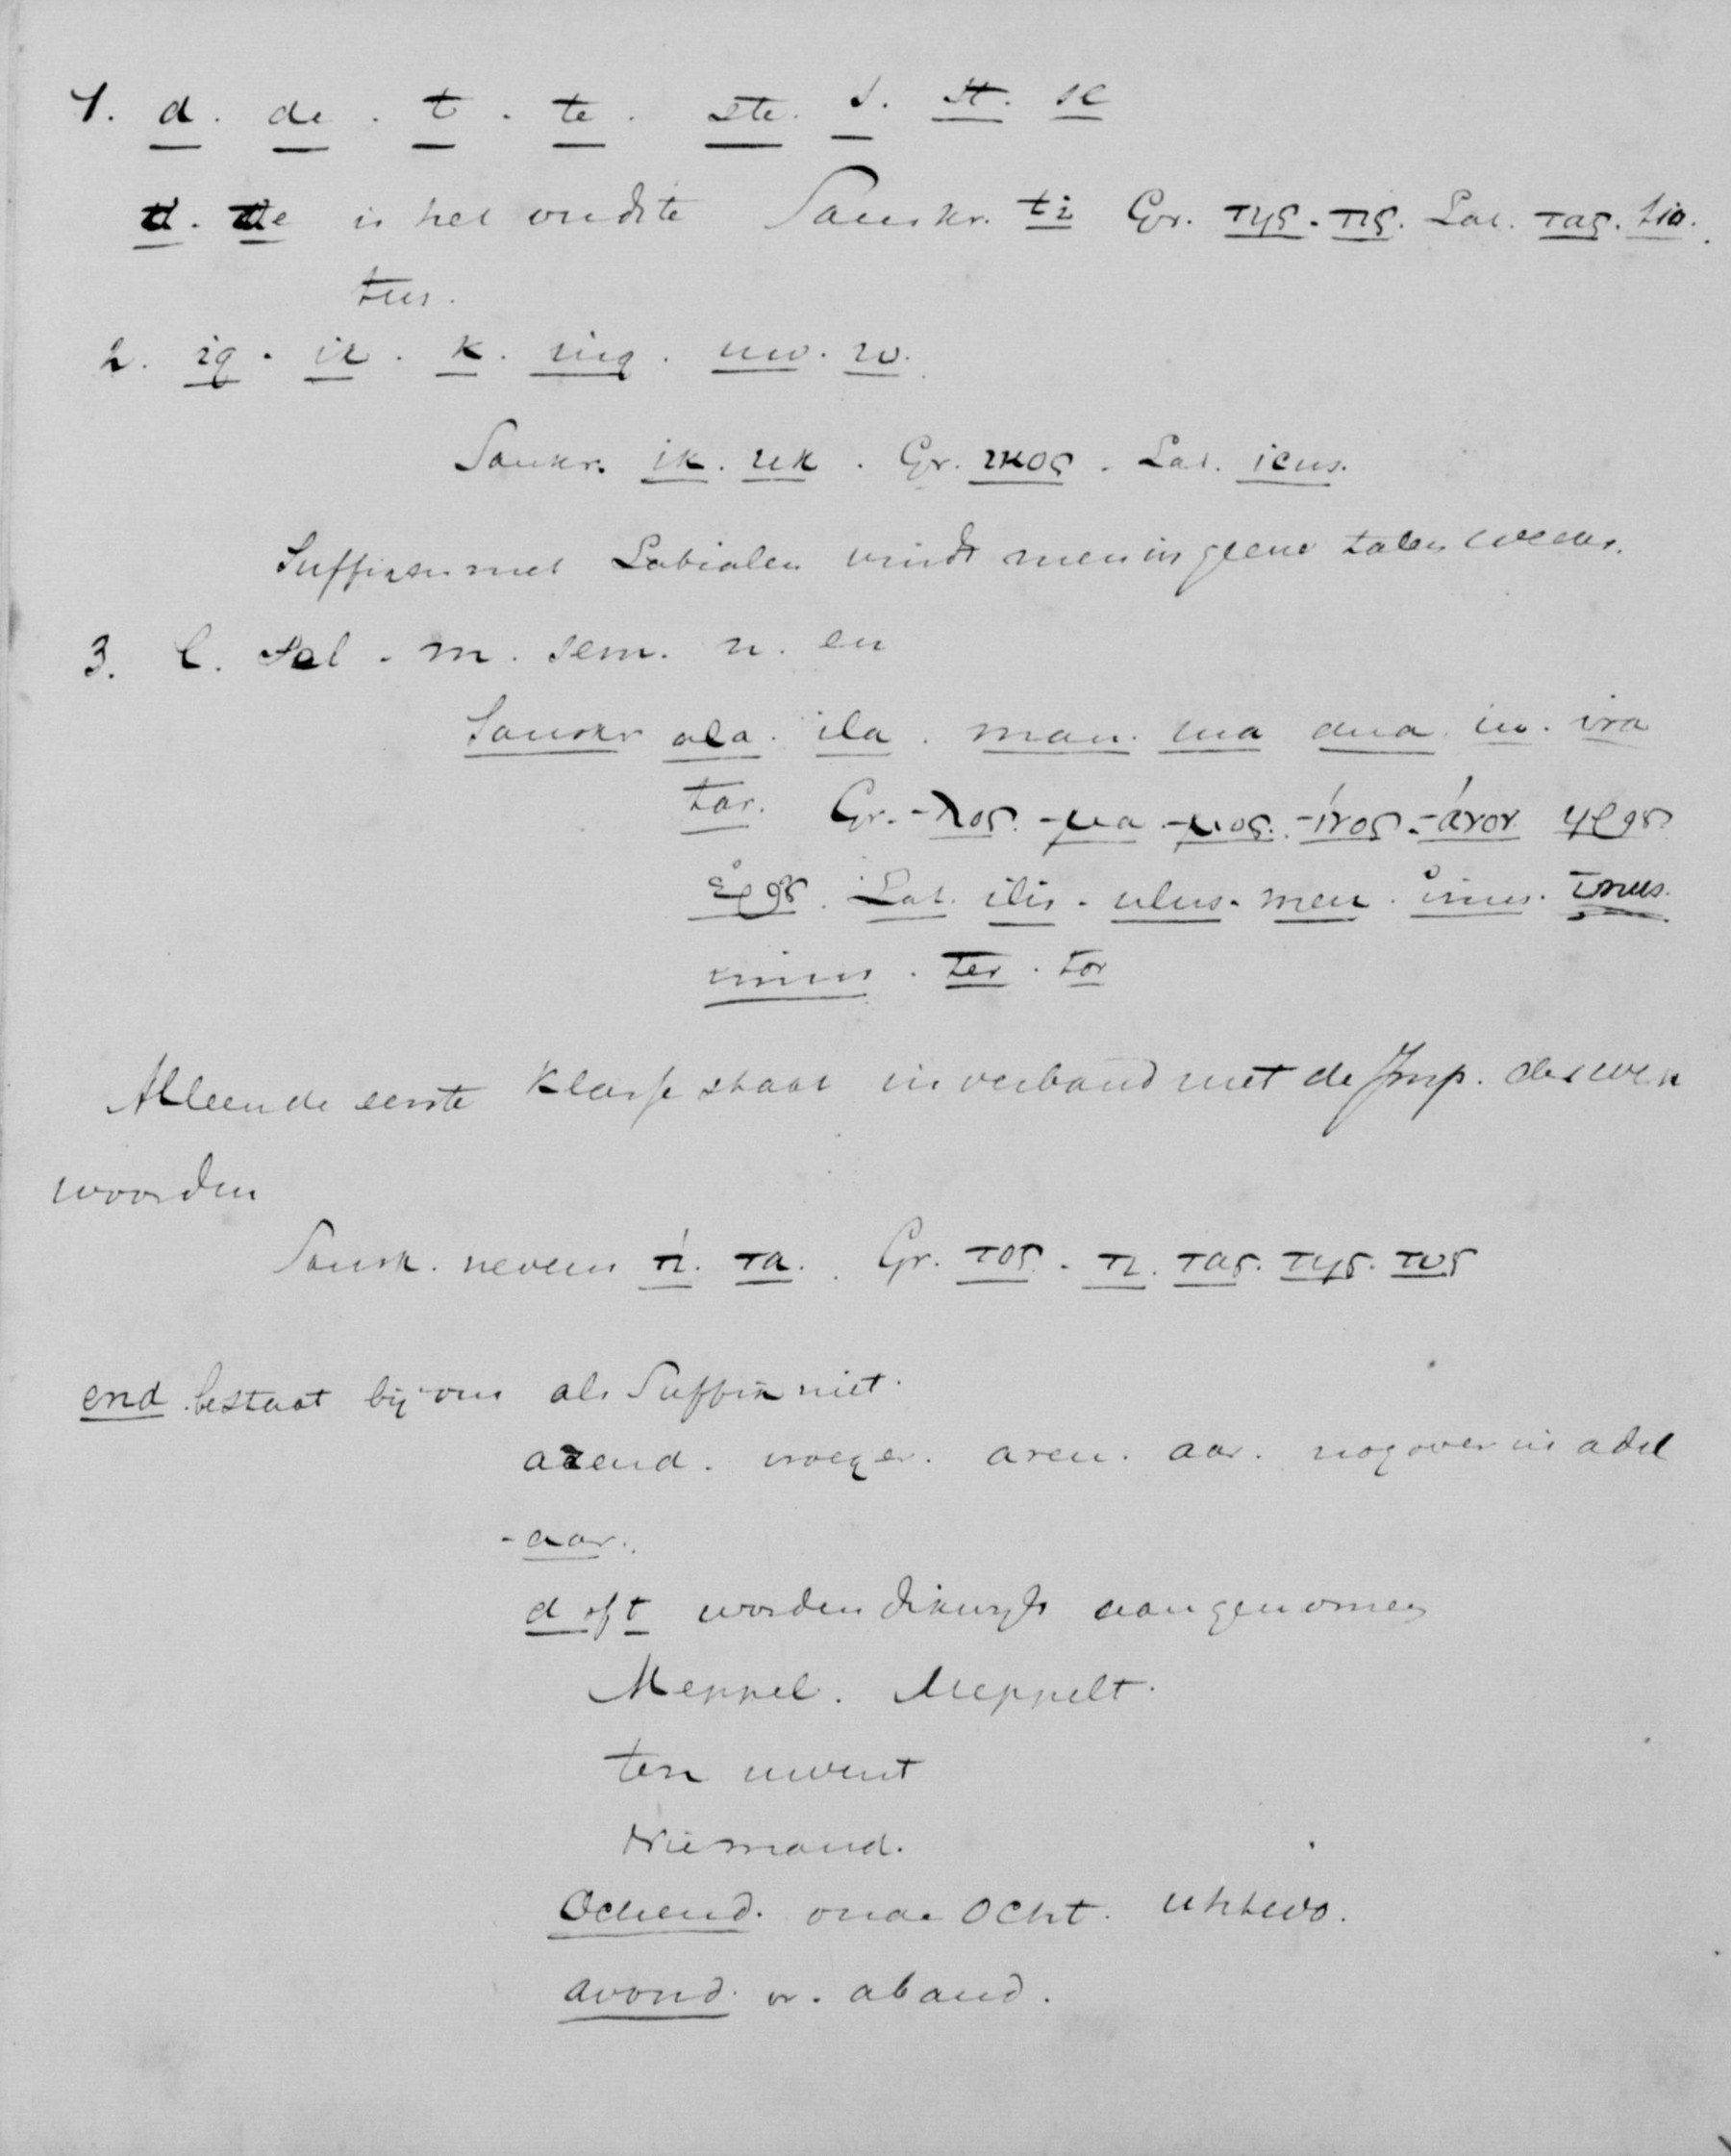 1. d. de. t. te. ste. s. st. se
d. de is het oudste Sanskr. ti Gr. της. τις. Lat. τας. tio.
tus.
2. ig. ik. k. ing. uw. w.
Sanskr. ik. uk. Gr. ικος. Lat. icus.
Suffixen met Labialen vindt men in geene talen weder.
3. l. sel. m. sem. n. en
Sanskr ala. ila. man. ma ana. in. ira
tar. Gr. -λος. -μα -μος. -ίνος -άνον ηρος
Lat. ilis. ulus. men. inus.
minus. ter. tor
Alleen de eerste Klasse staat in verband met de Imp. der
woorden
Sansk. nevens τι. τα. Gr. τος. τι. τας. της. τυς
end bestaat bij ons als Suffix niet.
arend. vroeger. aren. aar. nog over in adel
-aar.
d of t worden dikwijls aangenomen
Meppel. Meppelt.
ten uwent
Niemand.
Ochend. oude Ocht. uhtwo.
avond. v. aband.